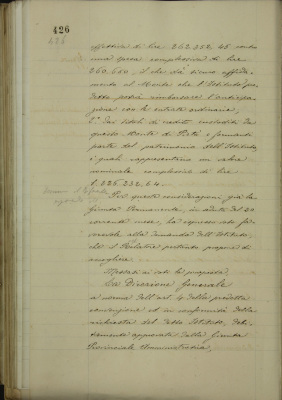 426
effettiva di lire 262.252,45 contro
una spesa complessiva di lire
260.660, il che dà sicuro affida-
mento al Monte che l'Istituto pre-
detto potrà rimborsare l'anticipa-
zione con le entrate ordinarie,
2° dai titoli di rendita custoditi da
questo Monte di Pietà e formanti
parte del patrimonio dell'Istituto
i quali rappresentano in valore
nominale complessivo di lire
Per queste considerazioni, già la
Giunta Permanente, in seduta del 20
corrente mese, ha espresso voto fa-
vorevole alla domanda dell'Istituto,
che il Relatore pertanto propone di
accogliere.
Messa ai voti la proposta,
La Direzione Generale
a norma dell'art. 4 della predetta
convenzione ed in conformità della
richiesta del detto Istituto, debi-
tamente approvata dalla Giunta
Provinciale Amministrativa,